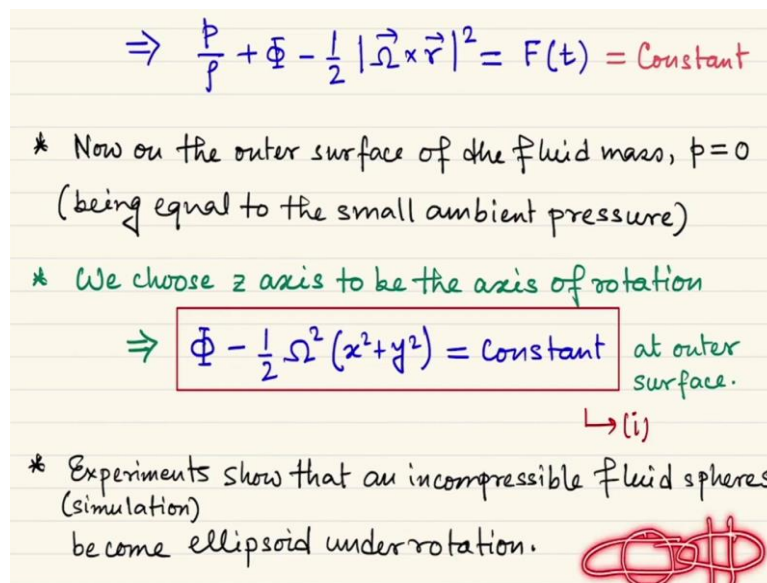 ⇒ p/ρ + Φ - 1/2 |Ω⃗ × r⃗|² = F(t) = Constant
* Now on the outer surface of the fluid mass, p = 0
(being equal to the small ambient pressure)
* We choose z axis to be the axis of rotation
⇒ Φ - 1/2 Ω² (x² + y²) = Constant at outer
surface.
↳ (i)
* Experiments show that an incompressible fluid spheres
(simulation)
become ellipsoid under rotation.